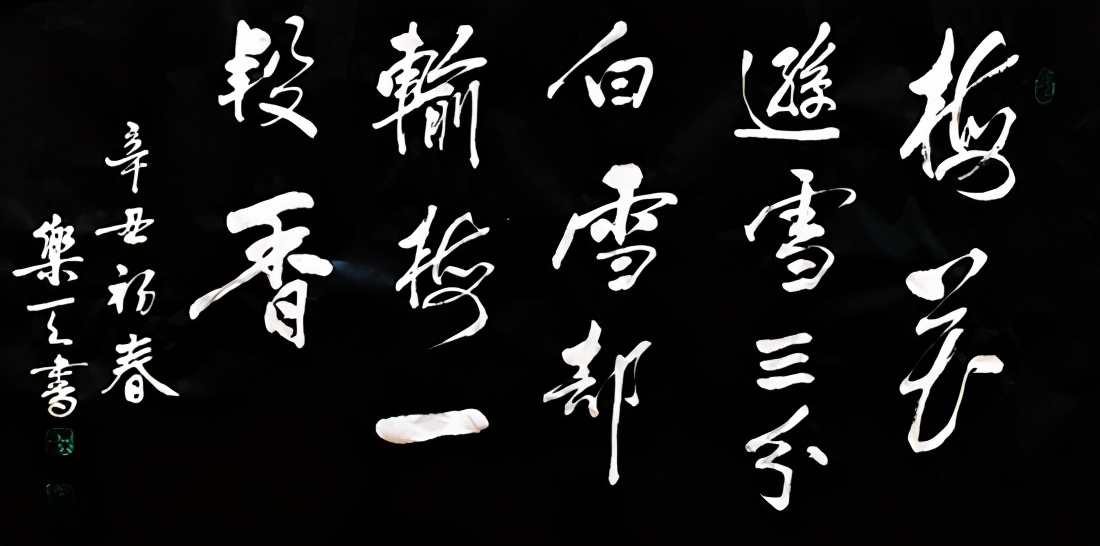 梅花
遜雪三分
白雪却
輸梅一
段香
辛丑初春
樂天書